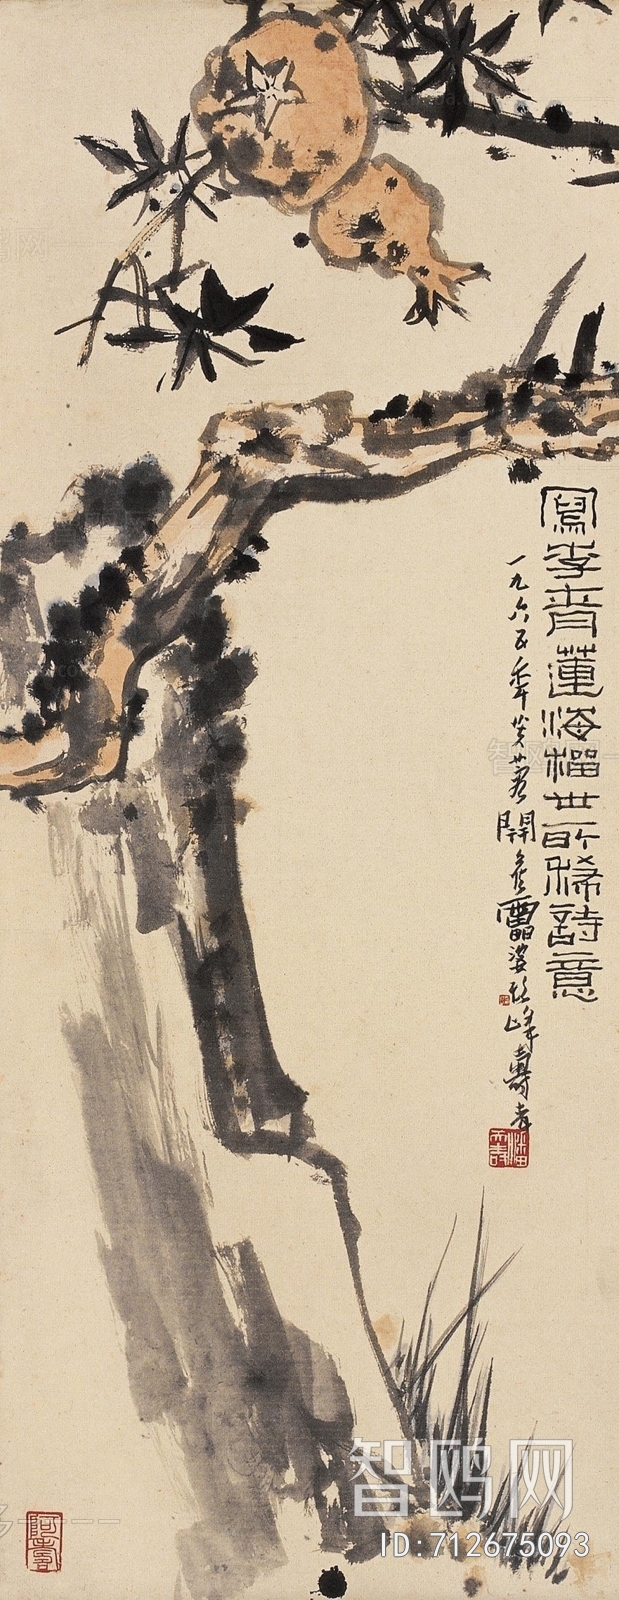 寫李青蓮海榴世所稀詩意
一九六五年芙蓉開候雷婆頭峰壽者
潘天壽
阿壽
智鸥网
ID:712675093